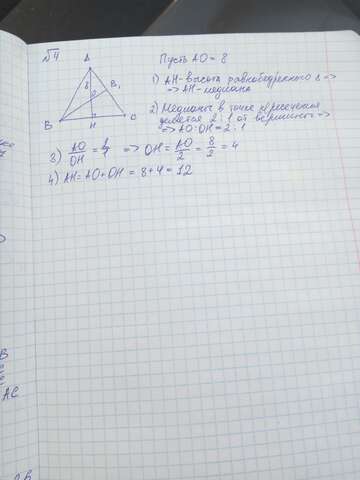 №4
Пусть AO = 8
A
8
O
B₁
B
H
C
1) AH - высота равнобедренного Δ =>
=> AH - медиана
2) Медианы в точке пересечения
делятся 2:1 от вершины =>
=> AO:OH = 2:1
3) AO/OH = 2/1 => OH = AO/2 = 8/2 = 4
4) AH = AO + OH = 8 + 4 = 12
B
AC